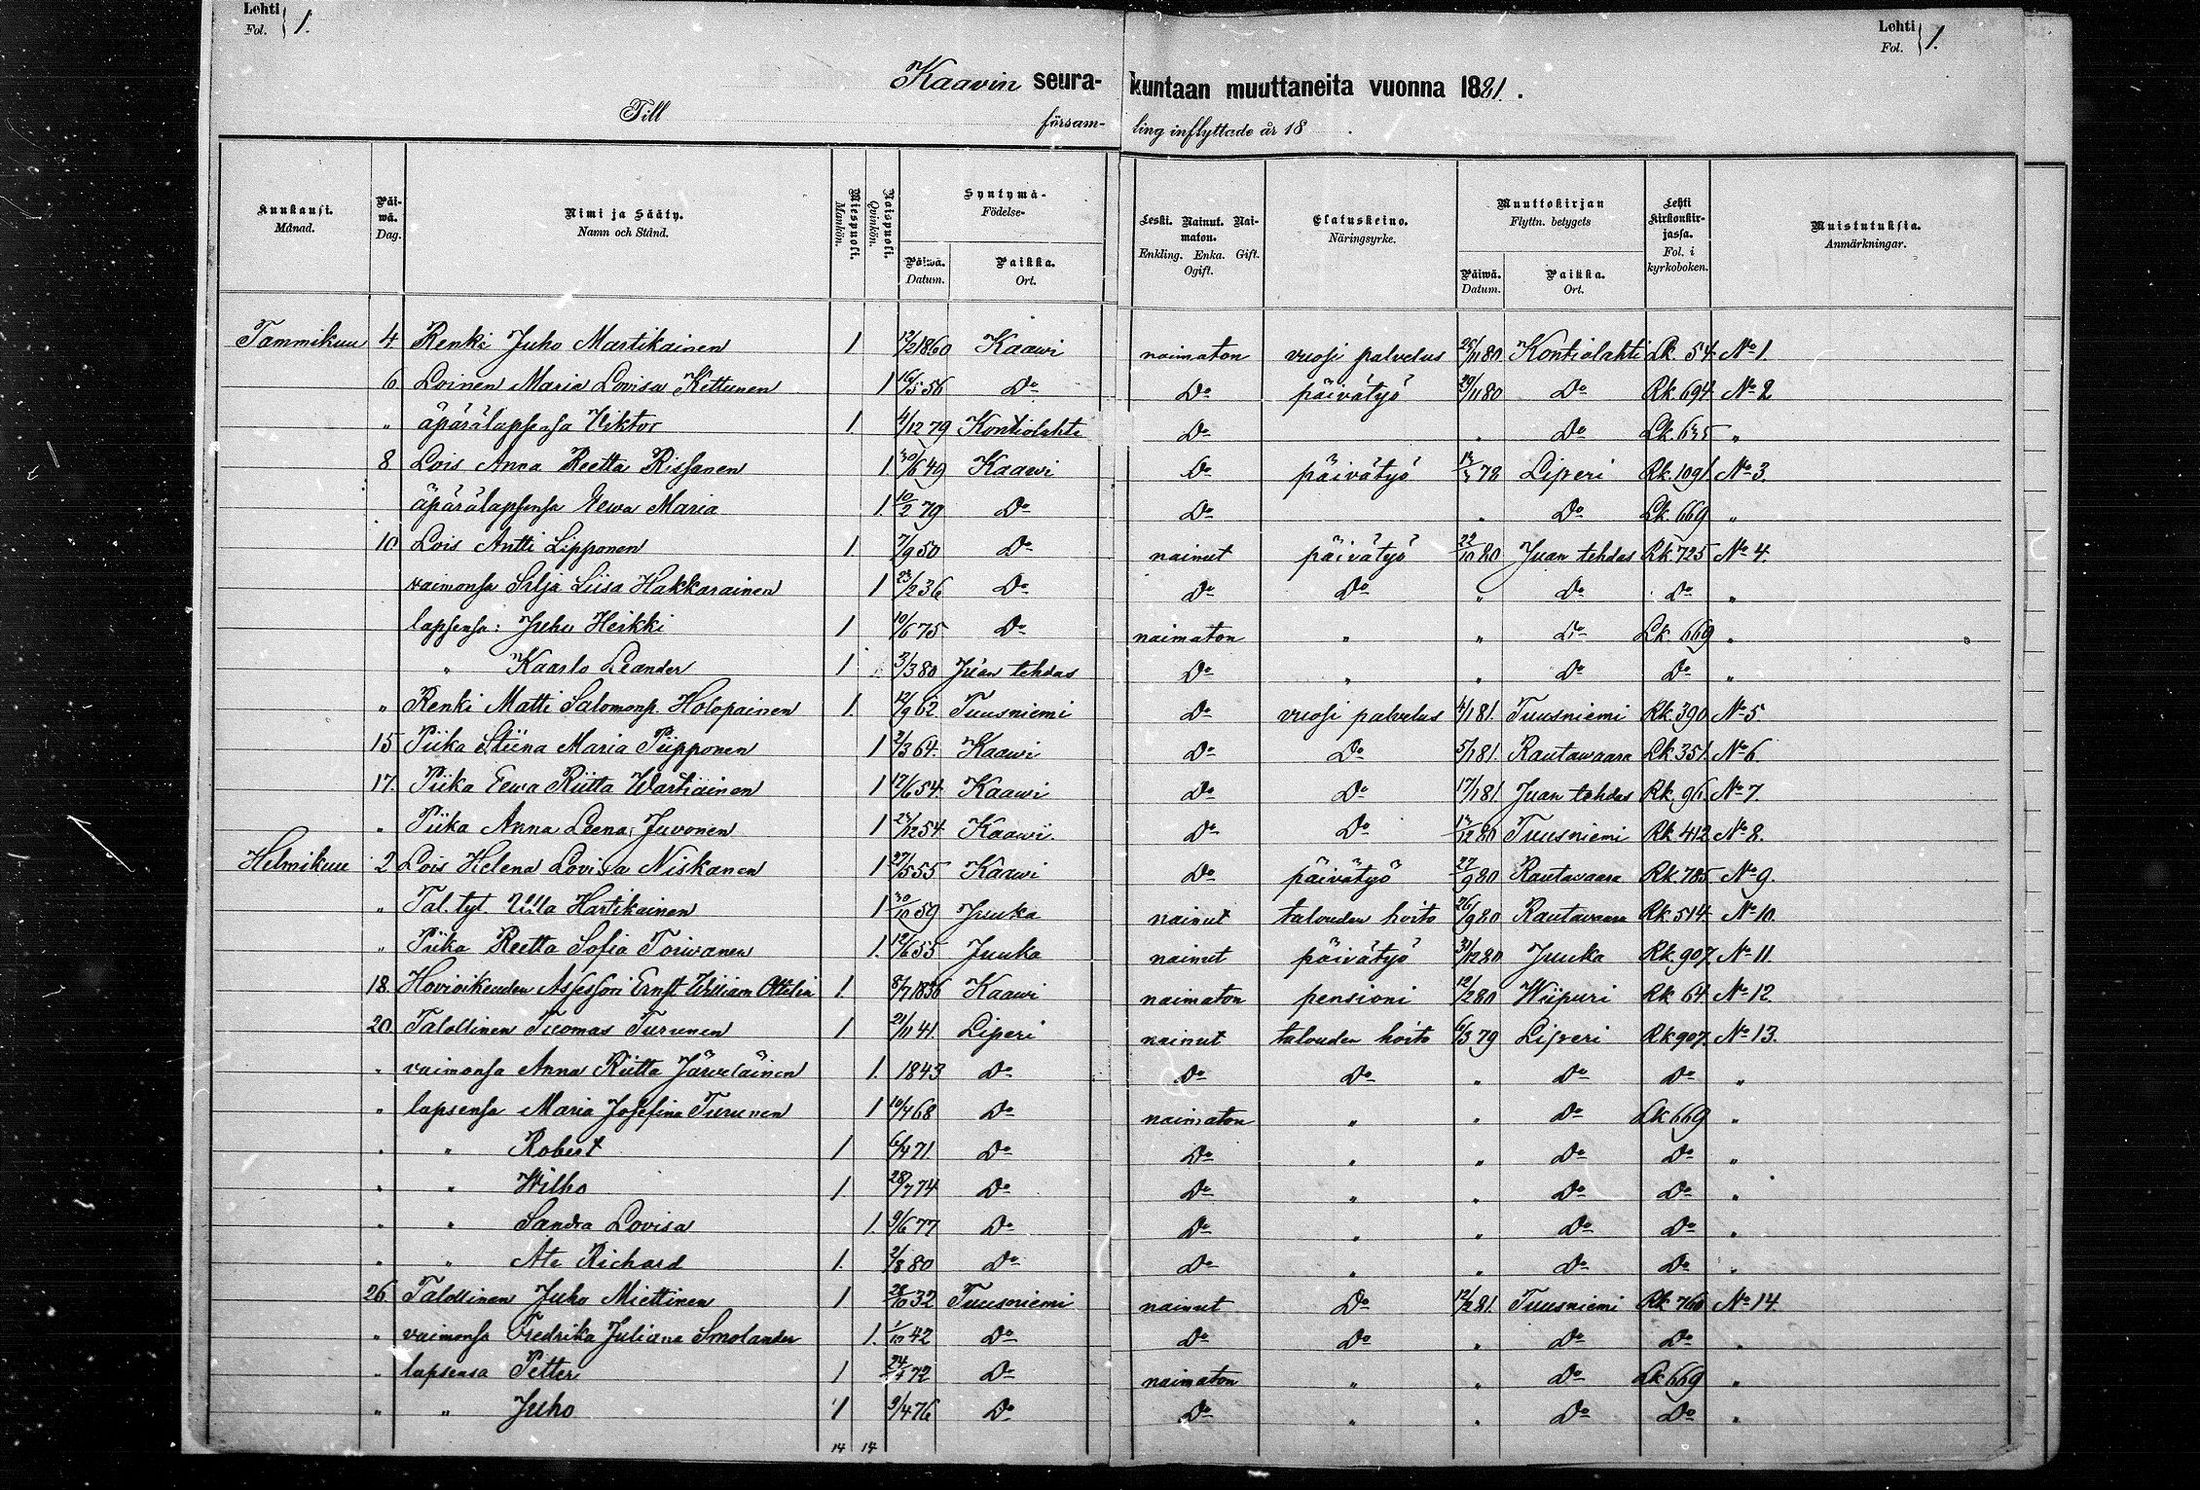 Lehti Fol. } 1. Lehti Fol. } 1.
Kaavin seura- kuntaan muuttaneita vuonna 1881.
Till försam- ling inflyttade år 18 .
Kuukausi. Månad. Päiwä. Dag. Nimi ja Sääty. Namn och Stånd. Miespuoli. Mankön. Naispuoli. Quinkön. Syntymä- Födelse- Päiwä. Datum. Paikka. Ort. Leski. Nainut. Naimaton. Enkling. Enka. Gift. Ogift. Elatuskeino. Näringsyrke. Muuttokirjan Flyttn. betygets Päiwä. Datum. Paikka. Ort. Lehti Kirkonkirjassa. Fol. i kyrkoboken. Muistutuksia. Anmärkningar.
Tammikuu 4 Renki Juho Martikainen 1 1860 Kaawi naimaton vuosi palvelus 25/11 80 Kontiolahti Lk. 54 No 1.
6 Loinen Maria Lovisa Kettunen 1 16/5 56 Do Do päivätyö 29/11 80 Do Rk. 694 No 2
" äpärälapsensa Viktor 1. 4/12 79 Kontiolahti Do " Do Lk. 635 "
8 Lois Anna Reetta Rissanen 1 30/6 49 Kaawi Do päivätyö 78 Liperi Rk. 1091. No 3.
äpärälapsensa Eewa Maria 1. 10/2 79 Do Do " Do Lk. 669 "
10 Lois Antti Lipponen 1 7/9 50 Do nainut päivätyö 22/10 80 Juan tehdas Rk. 725 No 4.
vaimonsa Silja Liisa Hakkarainen 1 23/2 36 Do Do Do " Do Do "
lapsensa: Juho Heikki 1 10/6 75 Do naimaton " " Do Lk. 669 "
" Kaarlo Leander 1 3/3 80 Juan tehdas Do " " Do Do "
" Renki Matti Salomonp. Holopainen 1. 12/9 62 Tuusniemi Do vuosi palvelus 4/1 81. Tuusniemi Rk. 390 No 5.
15 Piika Stiina Maria Piipponen 1 2/3 64. Kaawi Do Do 5/1 81. Rautawaara Lk. 351. No 6.
17. Piika Eewa Riitta Wartiainen 1 17/6 54. Kaawi Do Do 17/1 81 Juan tehdas Rk. 96. No 7.
" Piika Anna Leena Juvonen 1 54. Kaawi. Do Do 80 Tuusniemi Rk. 412 No 8.
Helmikuu 2 Lois Helena Lovisa Niskanen 1 27/5 55 Kaawi Do päivätyö 27/9 80 Rautavaara Rk. 785 No 9.
" Tal. tyt. Ulla Hartikainen 1 30/10 59 Juuka nainut talouden hoito 26/9 80 Rautawaara Rk 514 No 10.
" Piika Reetta Sofia Toiwanen 1. 12/6 55 Juuka nainut päivätyö 31/12 80 Juuka Rk. 907. No 11.
18. Hovioikeuden Assessori Ernst William Ottelin 1. 8/7 1836 Kaawi naimaton pensioni 12/2 80 Wiipuri Rk 64 No 12.
20. Talollinen Tuomas Turunen 1 21/11 41. Liperi nainut talouden hoito 6/3 79 Liperi Rk 907. No 13.
" vaimonsa Anna Riitta Järveläinen 1. 1843 Do Do Do " Do Do "
" lapsensa Maria Josefina Turunen 1 10/4 68 Do naimaton " " Do Lk 669 "
" " Robert 1 6/4 71 Do Do " " Do Do "
" " Wilho 1 28/7 74 Do Do " " Do Do "
" " Sandra Lovisa 1. 9/6 77 Do Do " " Do Do "
" " Ate Richard 1. 2/8 80 Do Do " " Do Do "
26 Talollinen Juho Miettinen 1 28/10 32 Tuusniemi nainut Do 12/2 81. Tuusniemi Rk 760 No 14.
" vaimonsa Fredrika Juliana Smolander 1. 1/10 42 Do Do Do " Do Do "
" lapsensa Petter 1 72 Do naimaton " " Do Lk 669 "
" " Juho 1 9/4 76 Do Do " " Do Do "
14 14